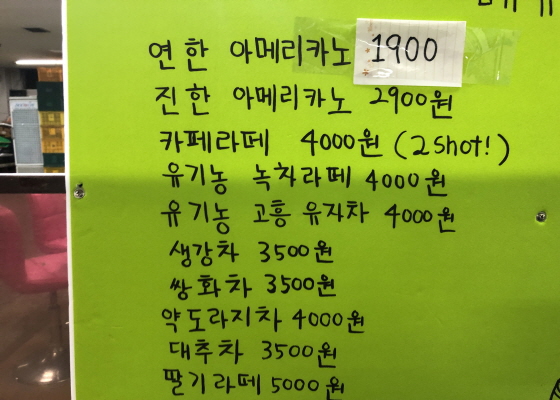 연한 아메리카노 1900
진한 아메리카노 2900원
카페라떼 4000원 (2shot!)
유기농 녹차라떼 4000원
유기농 고흥 유자차 4000원
생강차 3500원
쌍화차 3500원
약도라지차 4000원
대추차 3500원
딸기라떼 5000원